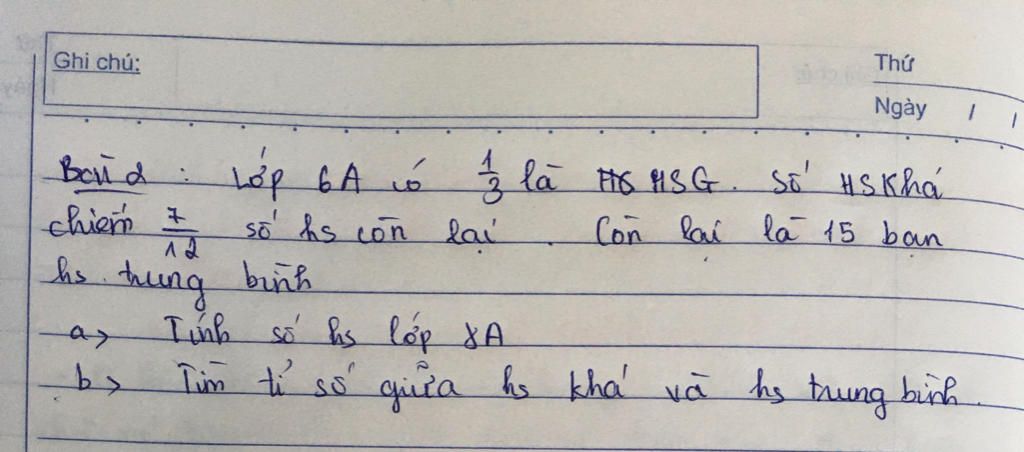 Ghi chú:
Thứ
Ngày / /
Bài 2 : Lớp 6A có 1/3 là HSG. Số HS Khá
chiếm 7/12 số hs còn lại. Còn lại là 15 bạn
hs trung bình
a> Tính số hs lớp 8A
b> Tìm tỉ số giữa hs khá và hs trung bình.